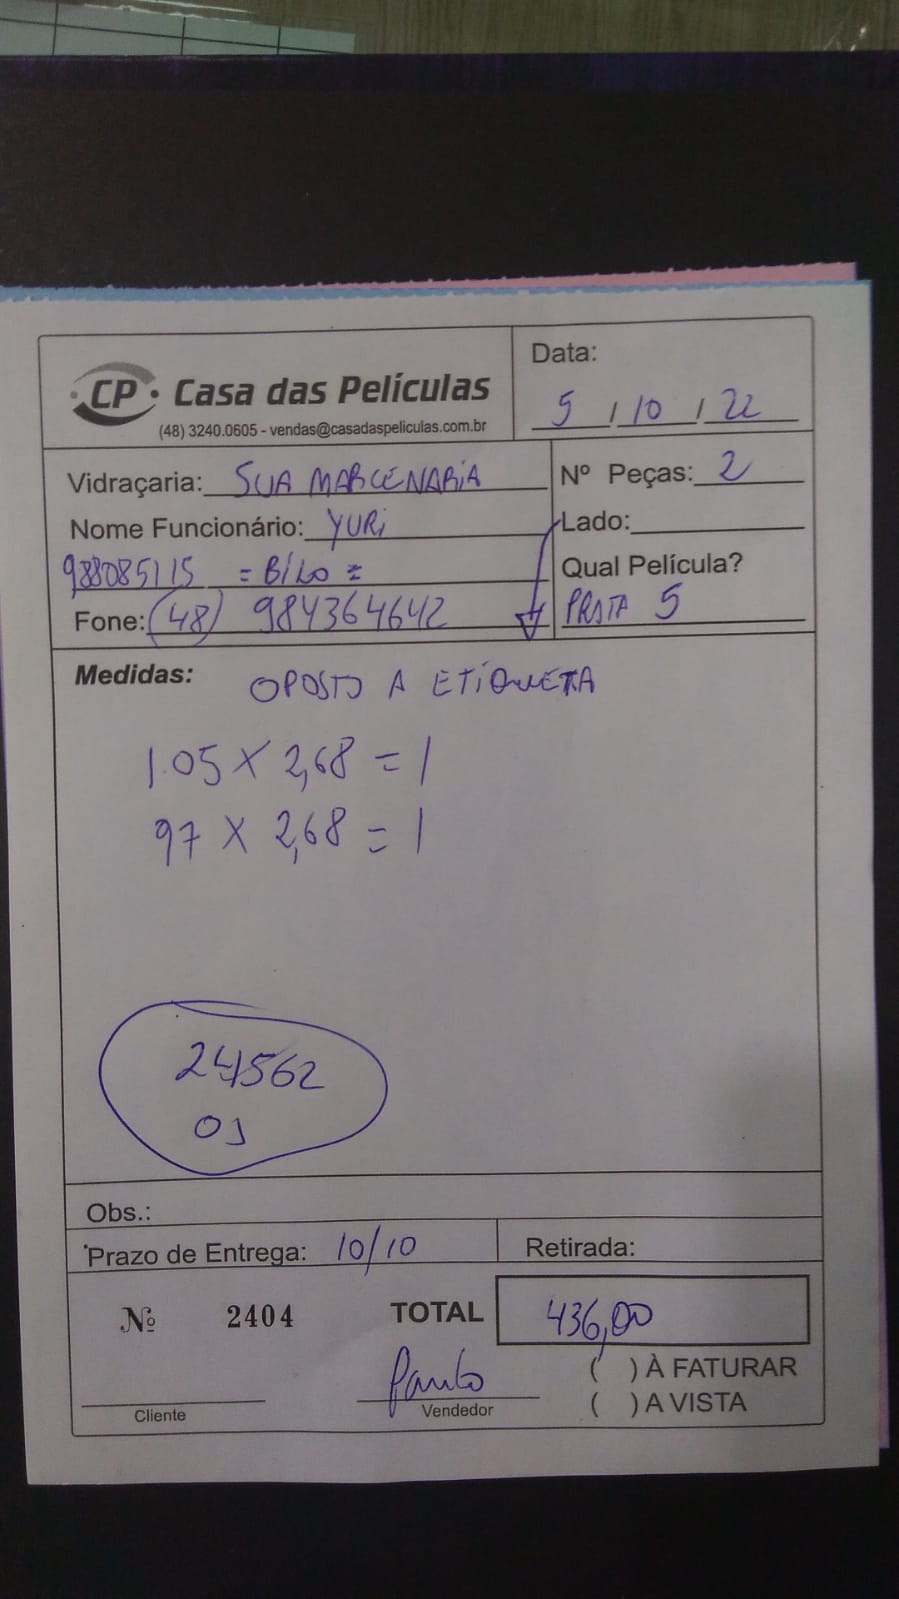 CP Casa das Películas
(48) 3240.0605 - vendas@casadaspeliculas.com.br
Data:
5 / 10 / 22
Vidraçaria: SUA MARCENARIA
Nº Peças: 2
Nome Funcionário: YURi
Lado:
988085115 = BiLo =
Qual Película?
Fone: (48) 984364642
PRATA 5
Medidas: OPOSTO A ETiQUETA
1.05 X 2,68 = 1
97 X 2,68 = 1
24562
OS
Obs.:
Prazo de Entrega: 10/10
Retirada:
Nº 2404
TOTAL 436,00
( ) À FATURAR
Paulo
( ) A VISTA
Cliente
Vendedor